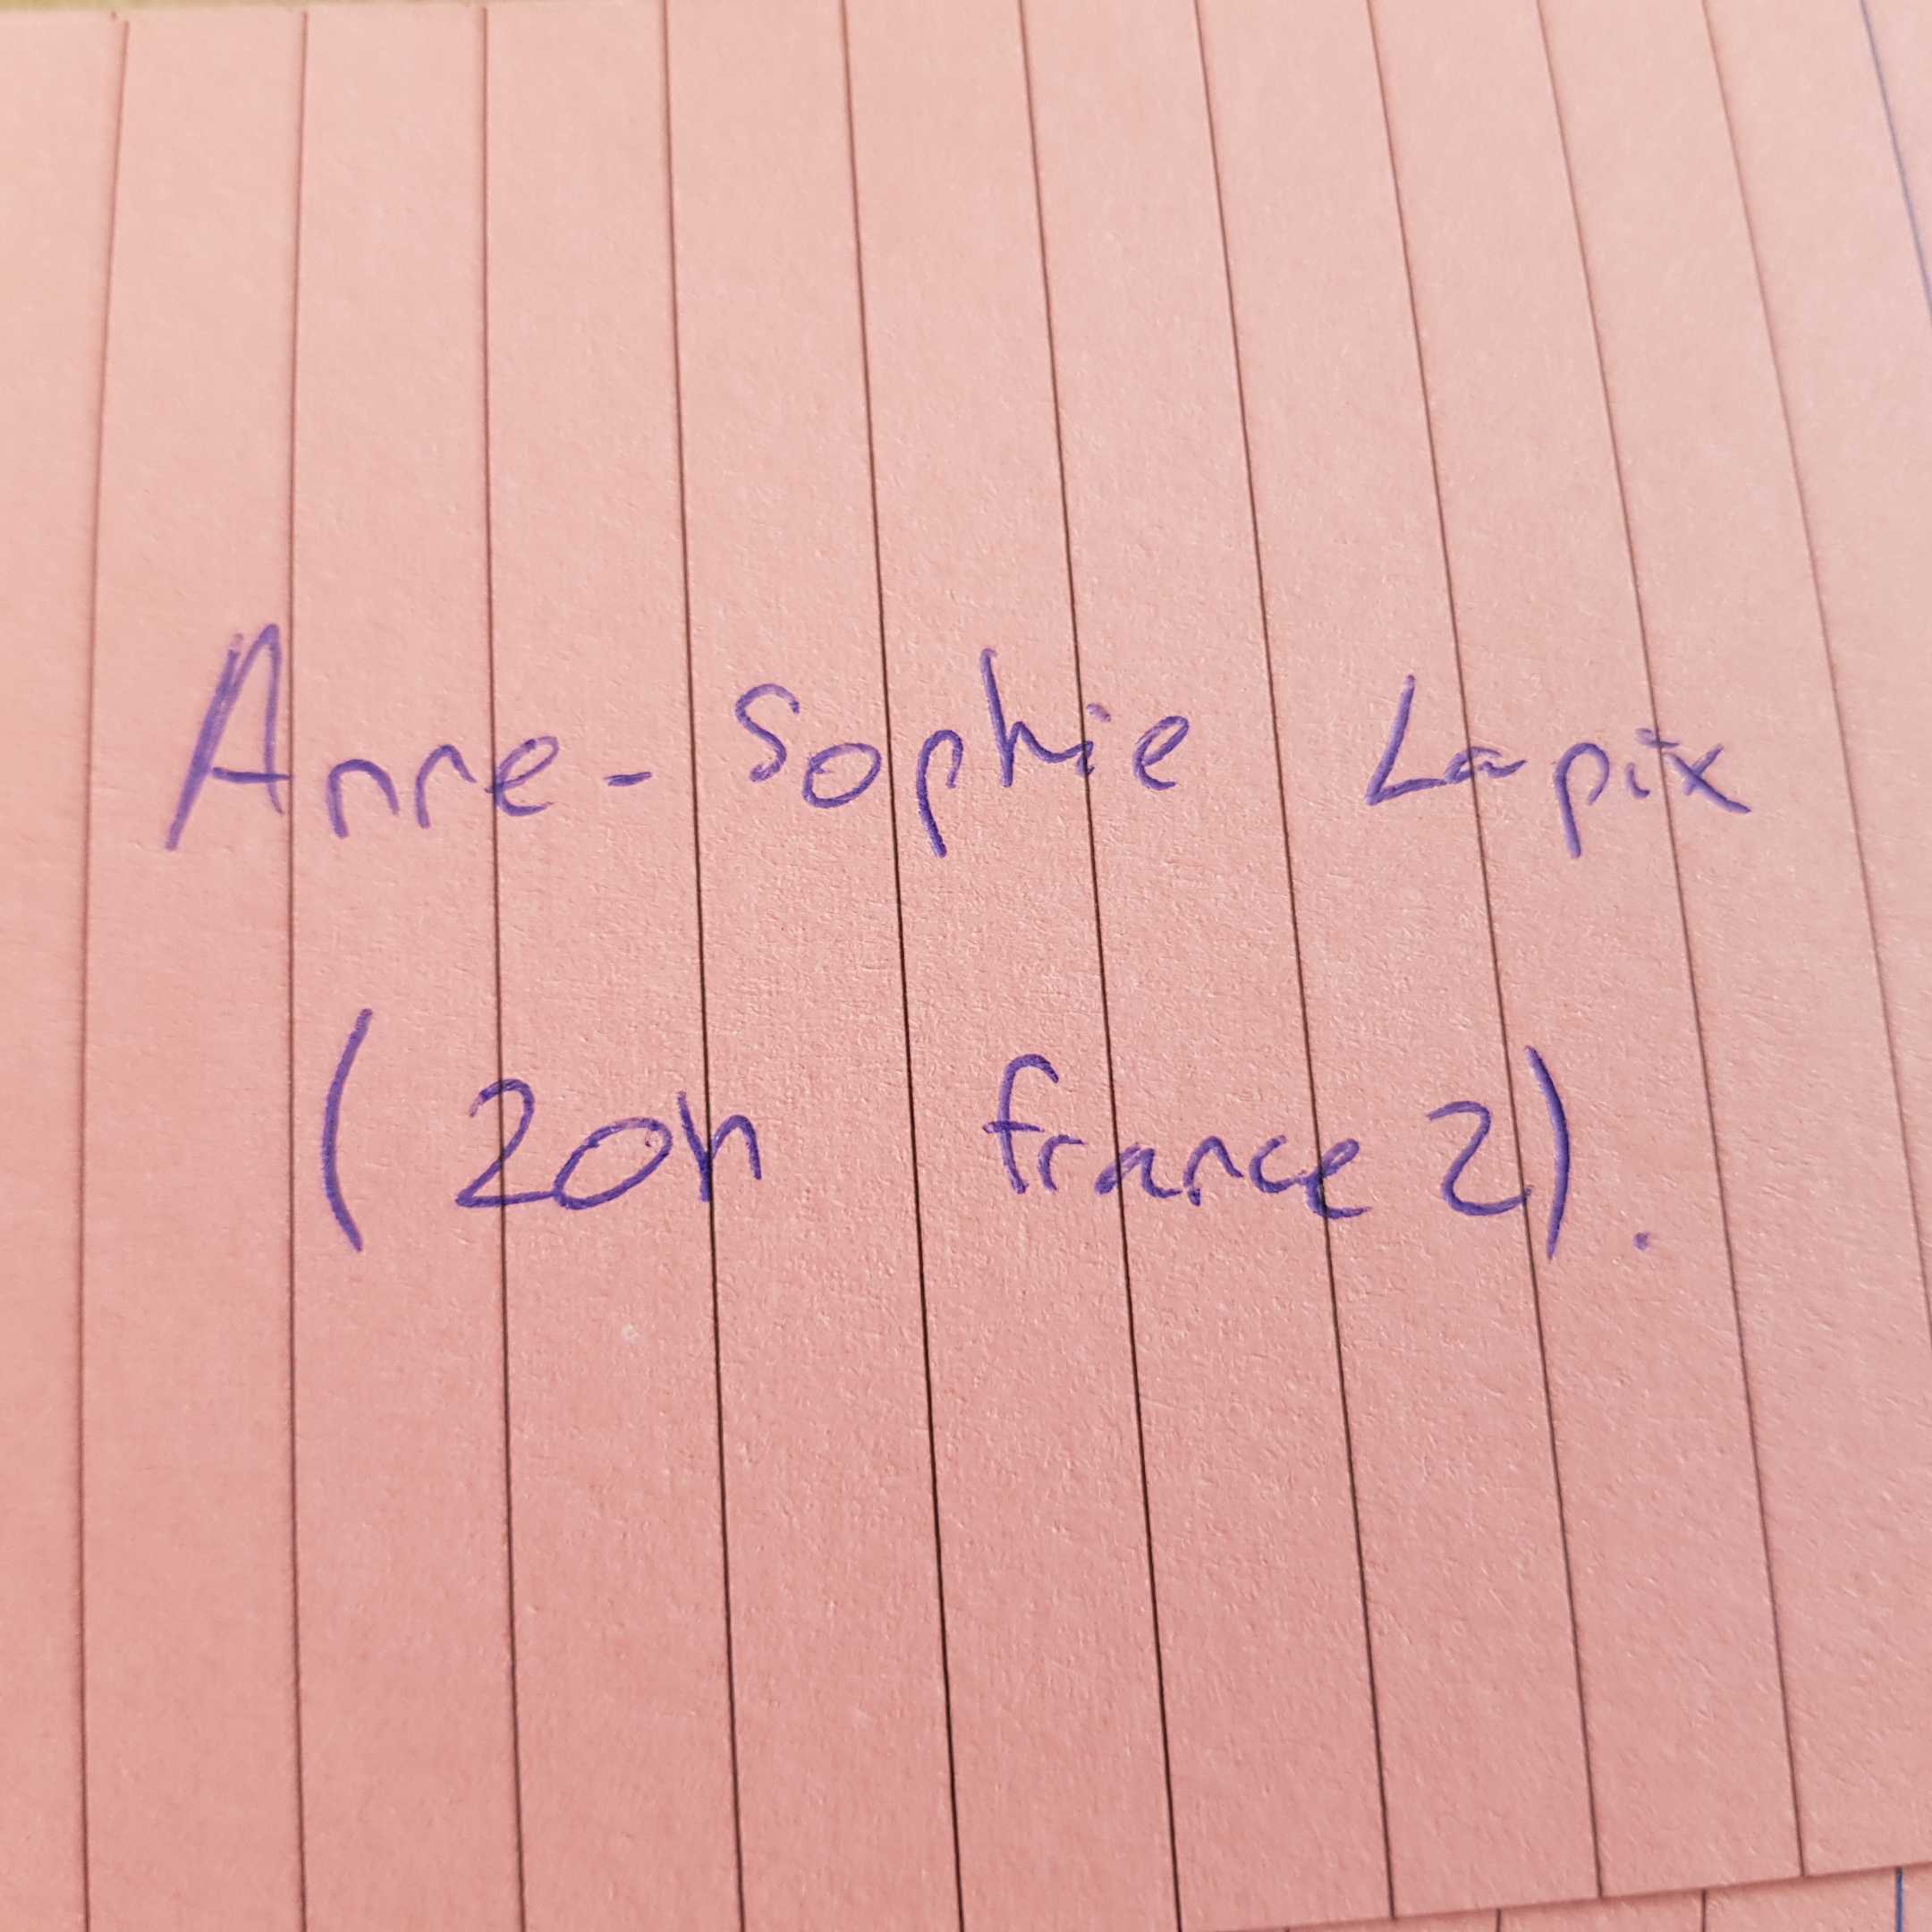 Anne-Sophie Lapix
(20h france 2).